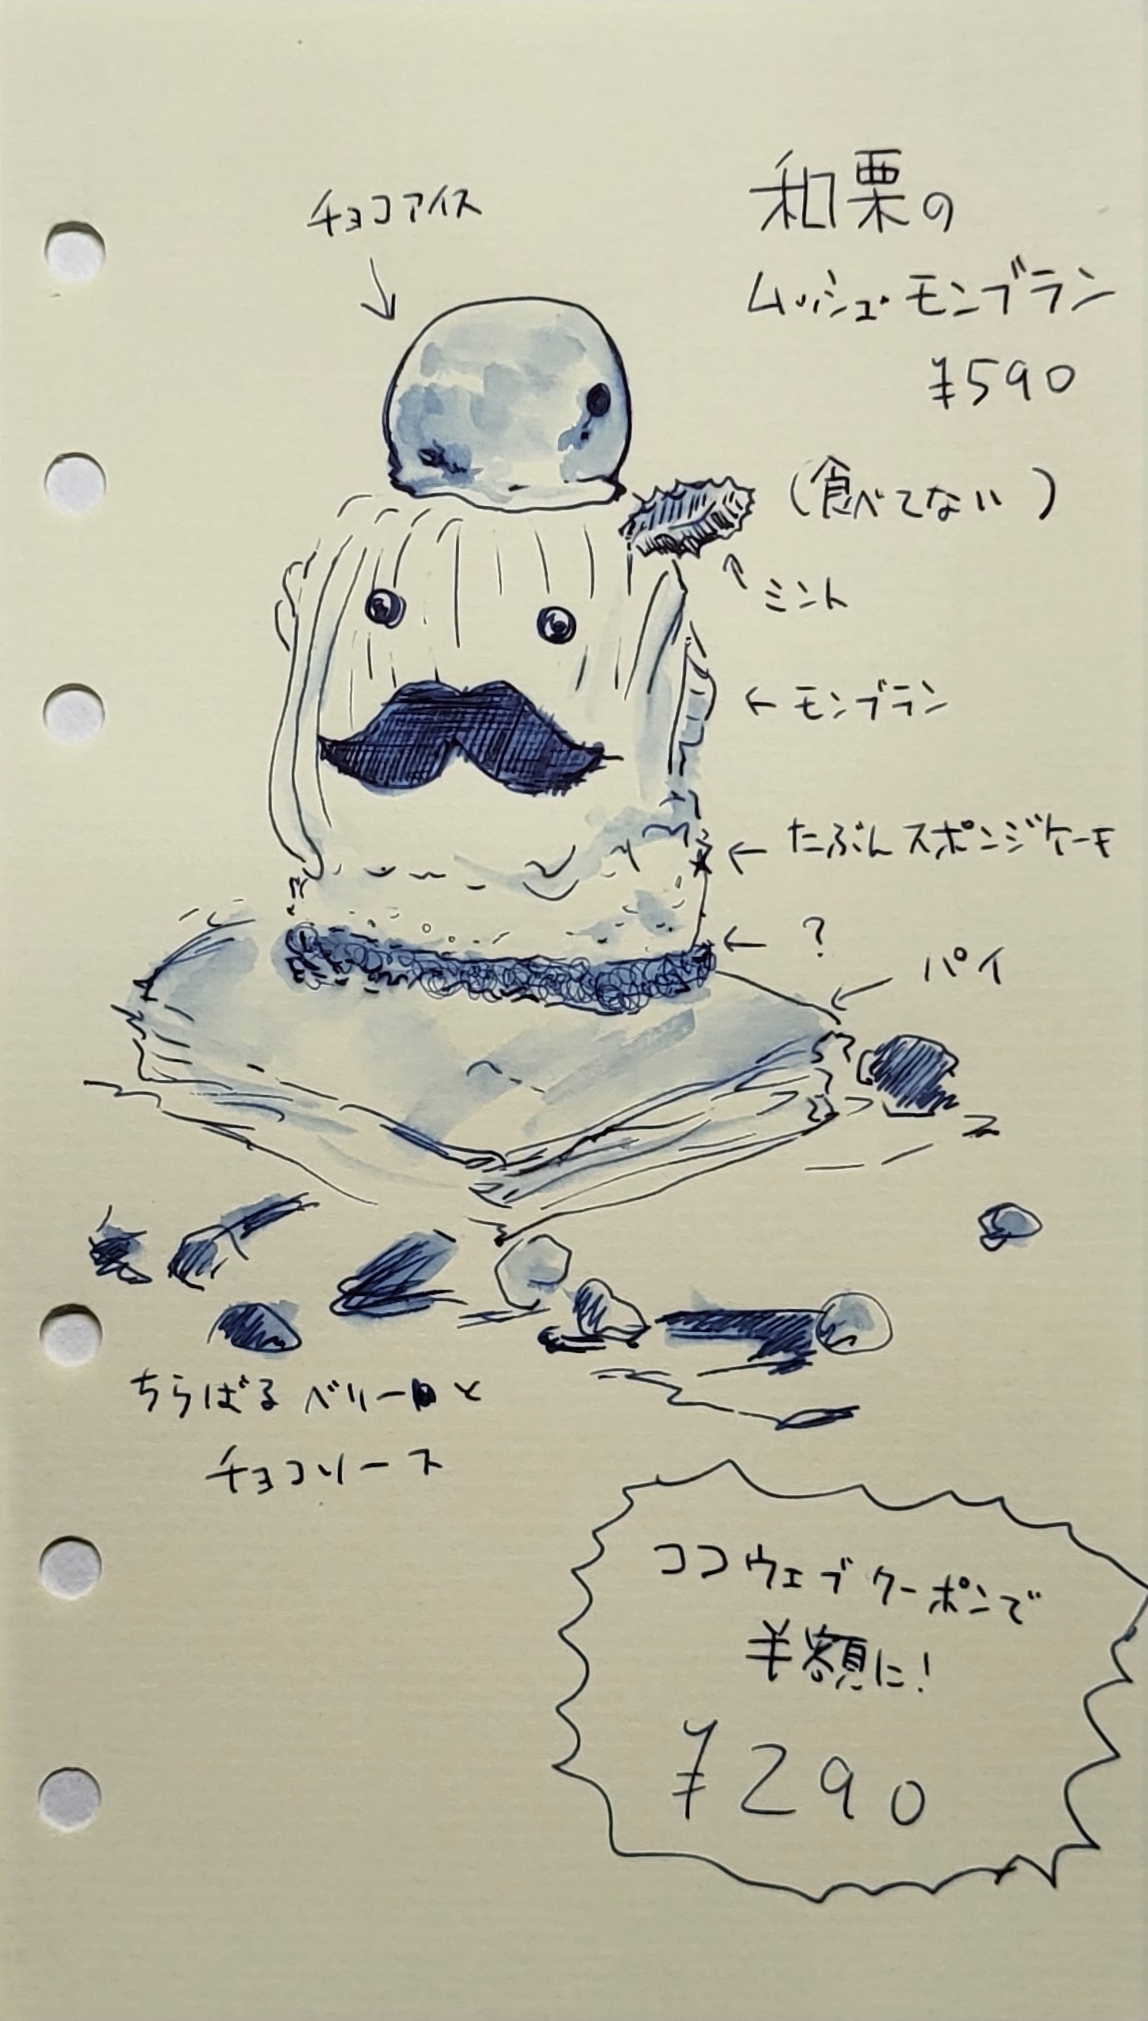 チョコアイス
和栗の
ムッシュ・モンブラン
¥590
(食べてない)
ミント
モンブラン
たぶんスポンジケーキ
?
パイ
ちらばるベリーと
チョコソース
ココウェブクーポンで
半額に!
¥290